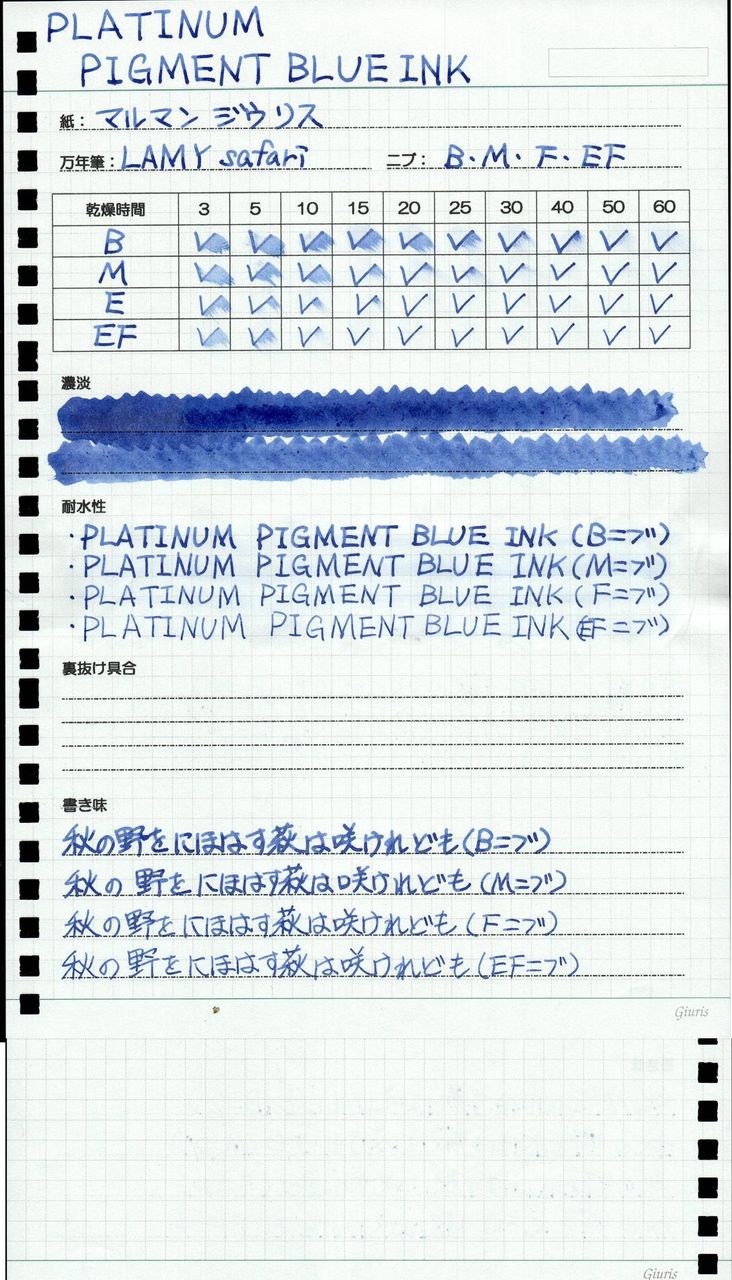 PLATINUM
PIGMENT BLUE INK
紙： マルマン ジウリス
万年筆： LAMY safari ニブ： B・M・F・EF
乾燥時間 3 5 10 15 20 25 30 40 50 60
B ✓ ✓ ✓ ✓ ✓ ✓ ✓ ✓ ✓ ✓
M ✓ ✓ ✓ ✓ ✓ ✓ ✓ ✓ ✓ ✓
E ✓ ✓ ✓ ✓ ✓ ✓ ✓ ✓ ✓ ✓
EF ✓ ✓ ✓ ✓ ✓ ✓ ✓ ✓ ✓ ✓
濃淡
耐水性
・PLATINUM PIGMENT BLUE INK (Bニブ)
・PLATINUM PIGMENT BLUE INK (Mニブ)
・PLATINUM PIGMENT BLUE INK (Fニブ)
・PLATINUM PIGMENT BLUE INK (EFニブ)
裏抜け具合
書き味
秋の野をにほはす萩は咲けれども(Bニブ)
秋の野をにほはす萩は咲けれども(Mニブ)
秋の野をにほはす萩は咲けれども(Fニブ)
秋の野をにほはす萩は咲けれども(EFニブ)
Giuris
Giuris